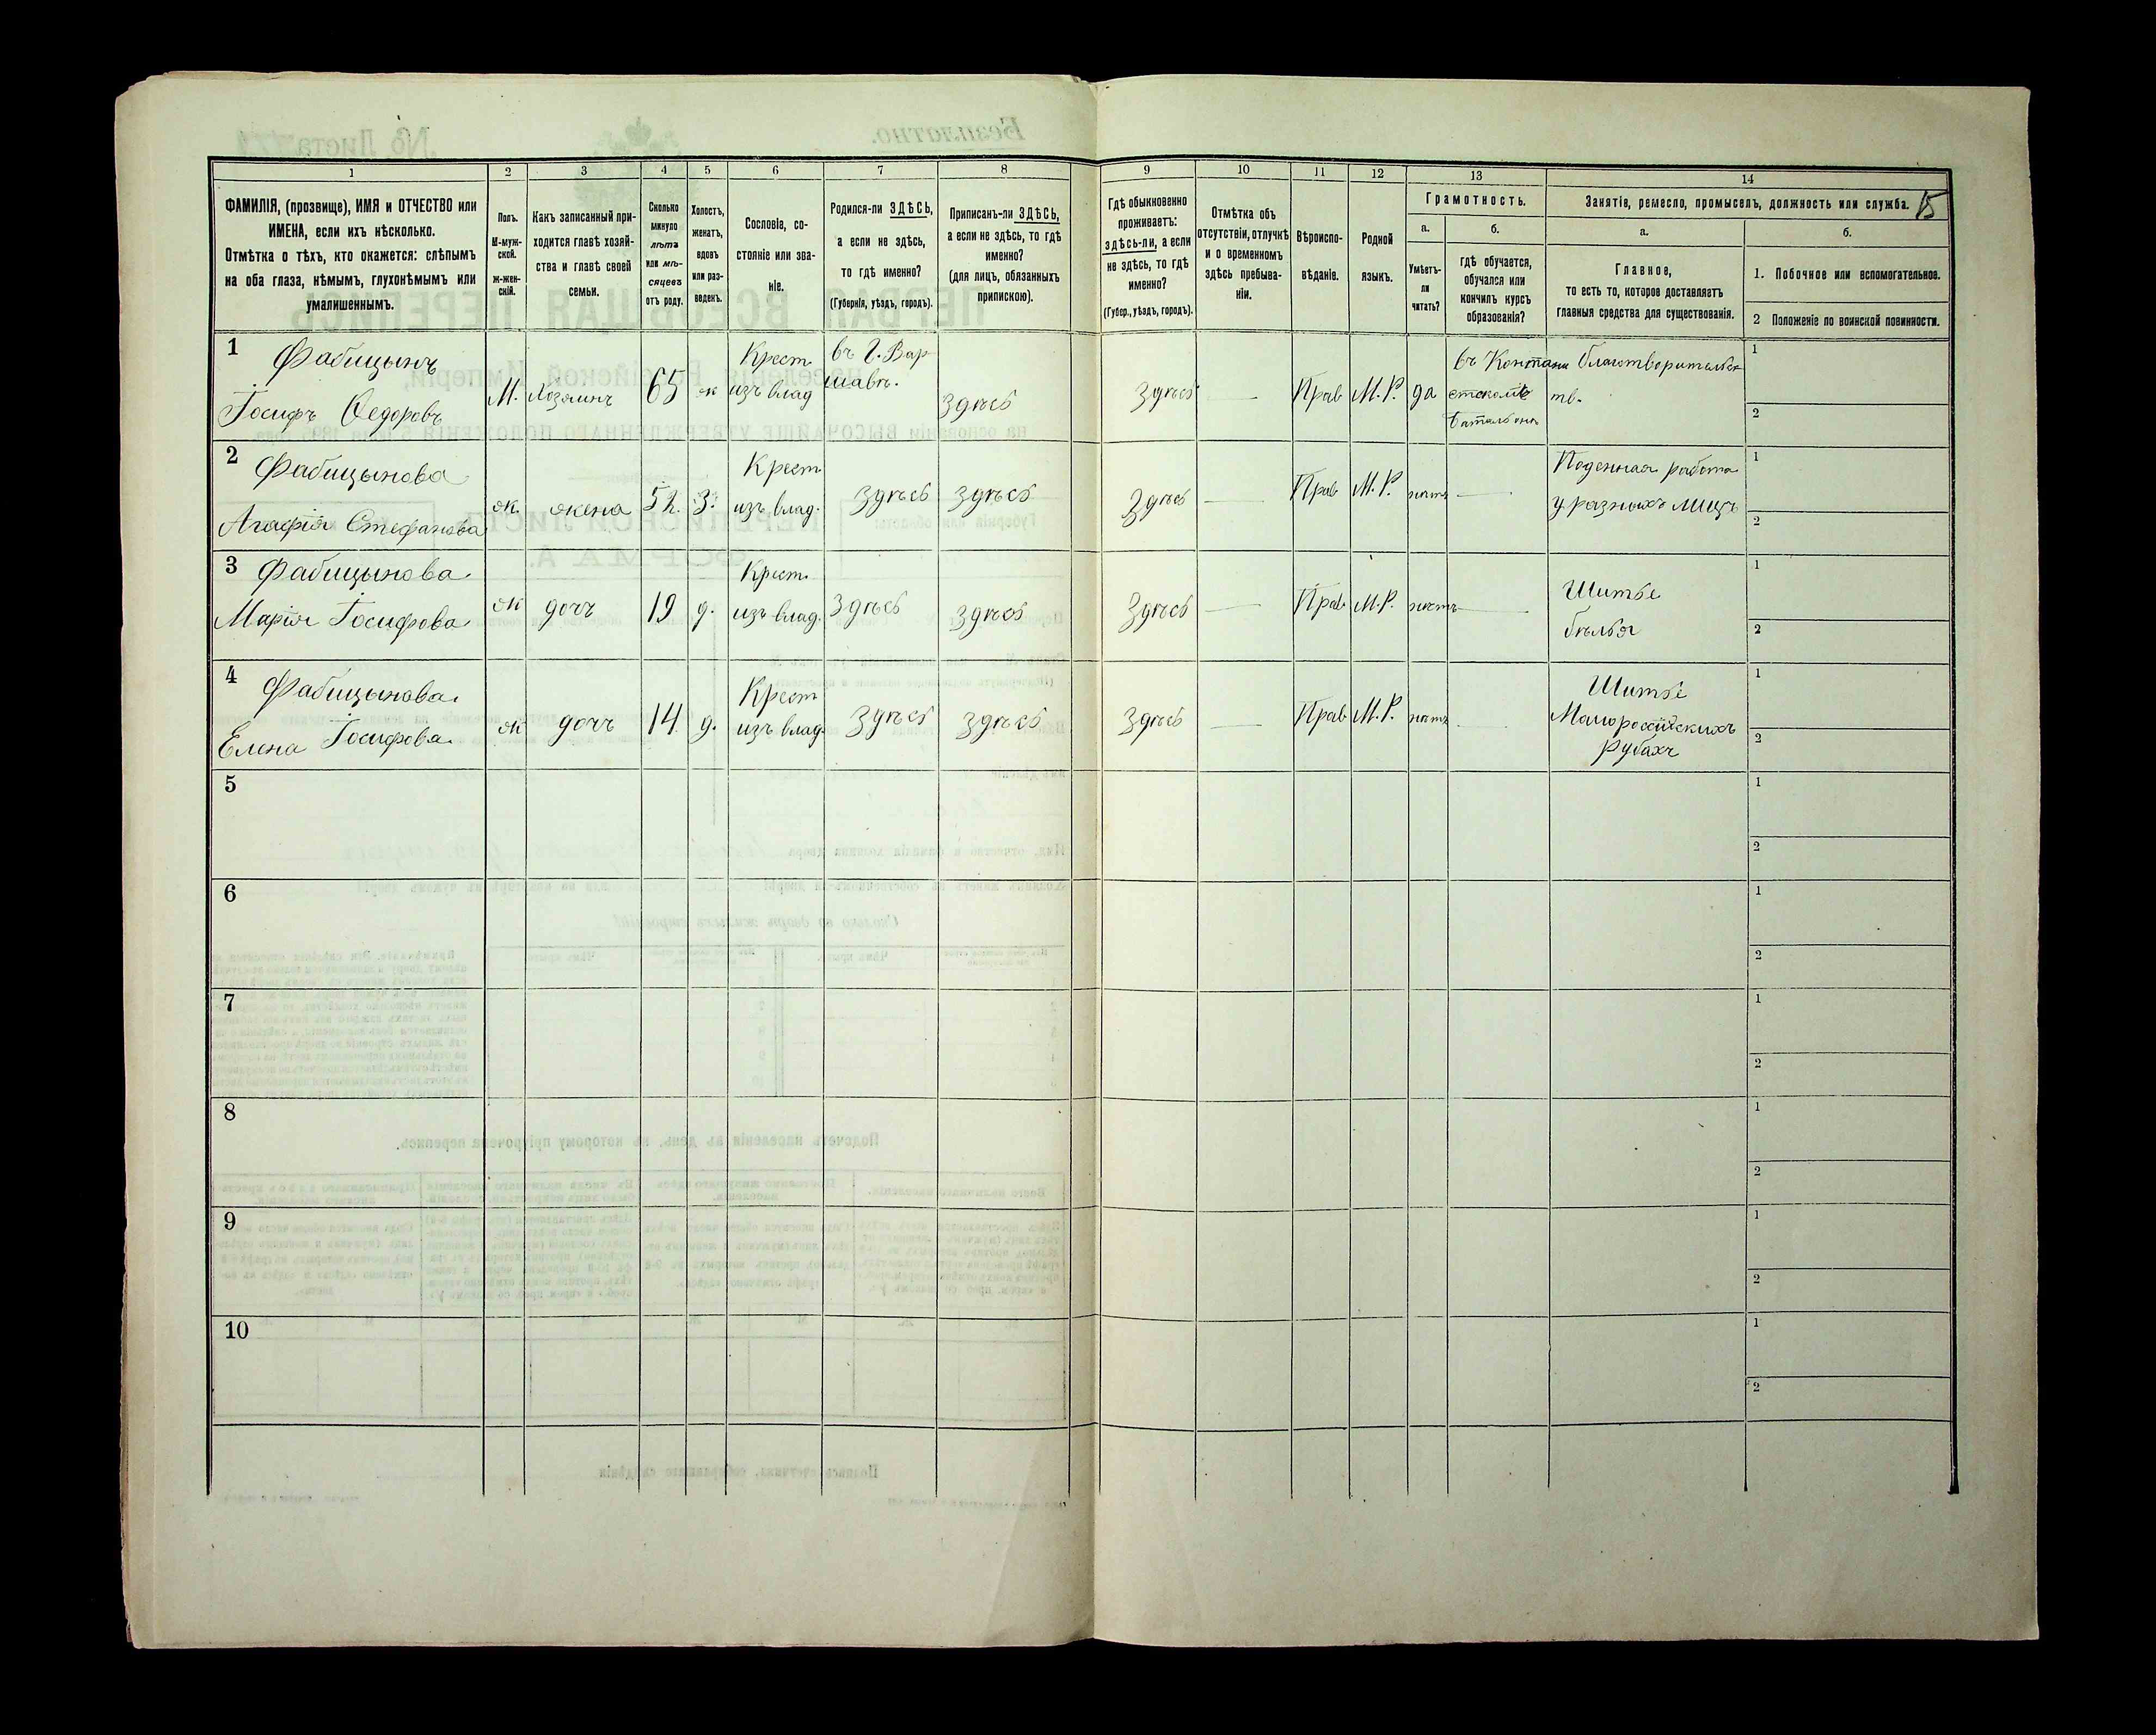 1 2 3 4 5 6 7 8 9 10 11 12 13 14
15
ФАМИЛІЯ, (прозвище), ИМЯ и ОТЧЕСТВО или
ИМЕНА, если ихъ нѣсколько.
Отмѣтка о тѣхъ, кто окажется: слѣпымъ
на оба глаза, нѣмымъ, глухонѣмымъ или
умалишеннымъ.
Полъ.
М-муж-
ской.
ж-жен-
скій.
Какъ записанный при-
ходится главѣ хозяй-
ства и главѣ своей
семьи.
Сколько
минуло
лѣтъ
или мѣ-
сяцевъ
отъ роду.
Холостъ,
женатъ,
вдовъ
или раз-
веденъ.
Сословіе, со-
стояніе или зва-
ніе.
Родился-ли ЗДѢСЬ,
а если не здѣсь,
то гдѣ именно?
(Губернія, уѣздъ, городъ).
Приписанъ-ли ЗДѢСЬ,
а если не здѣсь, то гдѣ
именно?
(для лицъ, обязанныхъ
припискою).
Гдѣ обыкновенно
проживаетъ:
здѣсь-ли, а если
не здѣсь, то гдѣ
именно?
(Губер., уѣздъ, городъ).
Отмѣтка объ
отсутствіи, отлучкѣ
и о временномъ
здѣсь пребыва-
ніи.
Вѣроиспо-
вѣданіе.
Родной
языкъ.
Грамотность.
а.
Умѣетъ-
ли
читать?
б.
гдѣ обучается,
обучался или
кончилъ курсъ
образованія?
Занятіе, ремесло, промыселъ, должность или служба.
а.
Главное,
то есть то, которое доставляетъ
главныя средства для существованія.
б.
1. Побочное или вспомогательное.
2 Положеніе по воинской повинности.
1
Фабицынъ
Іосифъ Ѳедоровъ
М.
Хозяинъ
65
ж
Крест
изъ влад
въ Г. Вар
шавѣ.
здѣсь
здѣсь
Прав
М.Р.
да
баталіонѣ
1
2
2
Фабицынова
Агафія Стефанова
ж.
жена
52.
З.
Крест
изъ влад.
здѣсь
здѣсь
здѣсь
Прав
М.Р.
нѣтъ
Поденная работа
у разныхъ лицъ
1
2
3
Фабицынова
Марія Іосифова
ж
дочь
19
д.
Крест.
изъ влад.
здѣсь
здѣсь
здѣсь
Прав
М.Р.
нѣтъ
Шитье
бѣлья
1
2
4
Фабицынова
Елена Іосифова
ж
дочь
14
д.
Крест
изъ влад.
здѣсь
здѣсь
здѣсь
Прав
М.Р.
нѣтъ
Шитье
Малороссійскихъ
рубахъ
1
2
5
1
2
6
1
2
7
1
2
8
1
2
9
1
2
10
1
2